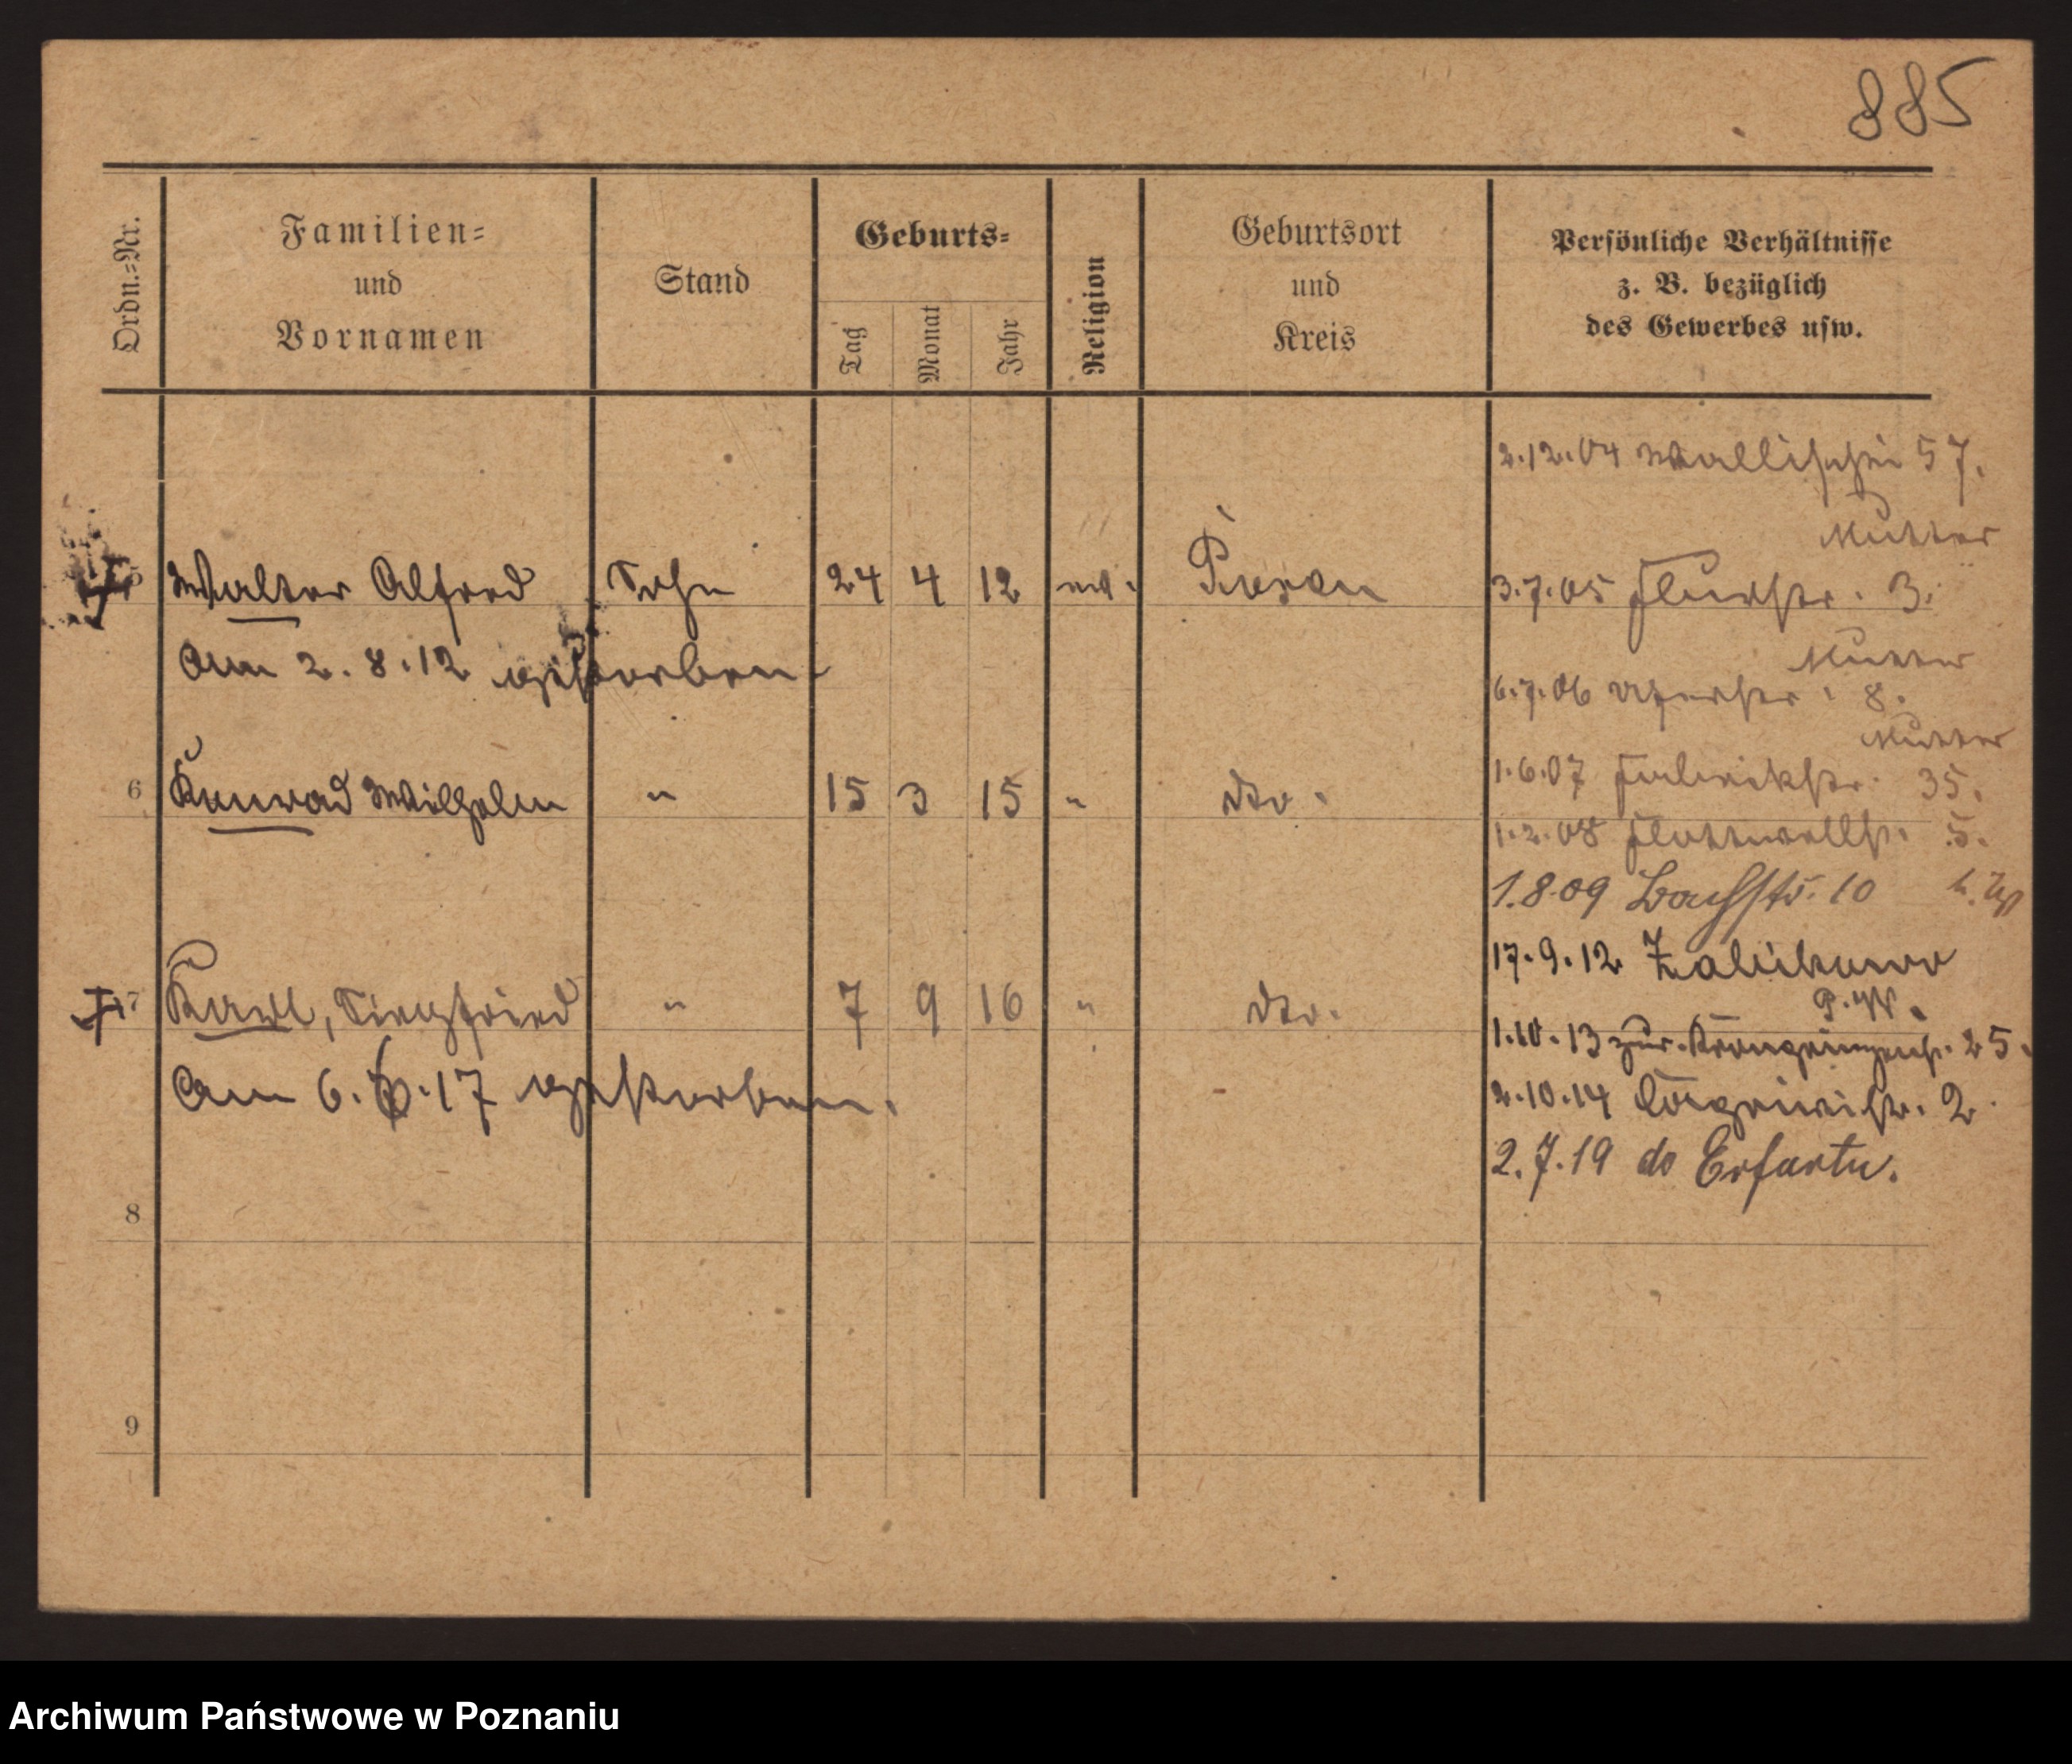 885
Ordn.-Nr.
Familien-
und
Vornamen
Stand
Geburts-
Tag
Monat
Jahr
Religion
Geburtsort
und
Kreis
Persönliche Verhältnisse
z. B. bezüglich
des Gewerbes usw.
2.12.04 Wallischei 57.
Mutter
5 Walter Alfred Sohn 24 4 12 ev. Posen
3.7.05 Flurstr. 3.
Am 2.8.12 gestorben
Mutter
6.7.06 8.
Mutter
6 Konrad Wilhelm " 15 3 15 " dto.
1.6.07 Fabrikstr. 35.
1.2.08 Flottwellst. 5.
1.8.09 Bachstr. 10
17.9.12 Zabikowo
P.W.
7 Karl, Siegfried " 7 9 16 " dto.
1.10.13 zur. Kronprinzenst. 25.
Am 6. .17 gestorben.
2.10.14 2.
2.7.19 do Erfurtu.
8
9
Archiwum Państwowe w Poznaniu